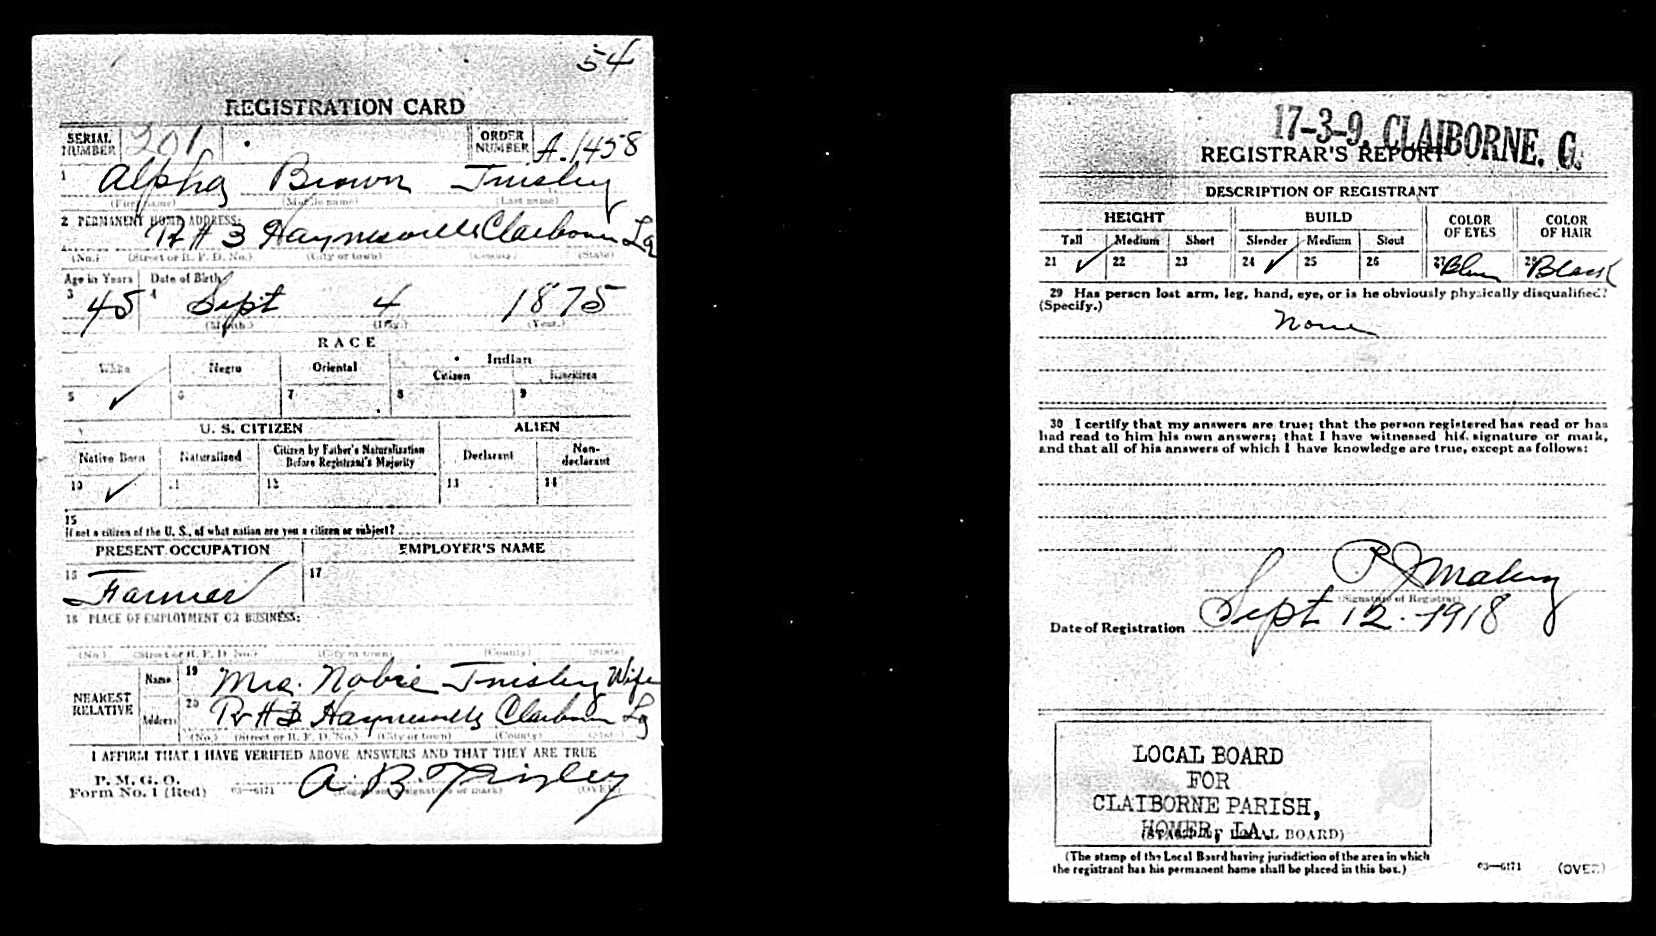 54
REGISTRATION CARD
SERIAL NUMBER 201 ORDER NUMBER A. 1458
1 Alpha Brown Tinsley
(First name) (Middle name) (Last name)
2 PERMANENT HOME ADDRESS:
Rt # 3 Haynesville Claiborne La
(No.) (Street or R. F. D. No.) (City or town) (County) (State)
Age in Years Date of Birth
3 45 4 Sept 4 1875
(Month.) (Day.) (Year.)
RACE
White Negro Oriental Indian
Citizen Noncitizen
5 ✓ 6 7 8 9
U. S. CITIZEN ALIEN
Native Born Naturalized Citizen by Father's Naturalization Before Registrant's Majority Declarant Non-declarant
10 ✓ 11 12 13 14
15
If not a citizen of the U. S., of what nation are you a citizen or subject?
PRESENT OCCUPATION EMPLOYER'S NAME
16 Farmer 17
18 PLACE OF EMPLOYMENT OR BUSINESS:
(No.) (Street or R. F. D. No.) (City or town) (County) (State)
NEAREST RELATIVE
Name 19 Mrs. Nobie Tinsley Wife
Address 20 Rt # 3 Haynesville Claiborne La
(No.) (Street or R. F. D. No.) (City or town) (County) (State)
I AFFIRM THAT I HAVE VERIFIED ABOVE ANSWERS AND THAT THEY ARE TRUE
P. M. G. O.
Form No. 1 (Red) 03—6171 A. B Tinsley
(Registrant's signature or mark) (OVER)
17-3-9. CLAIBORNE. C.
REGISTRAR'S REPORT
DESCRIPTION OF REGISTRANT
HEIGHT BUILD COLOR OF EYES COLOR OF HAIR
Tall Medium Short Slender Medium Stout
21 ✓ 22 23 24 ✓ 25 26 27 Blue 28 Black
29 Has person lost arm, leg, hand, eye, or is he obviously physically disqualified?
(Specify.)
None
30 I certify that my answers are true; that the person registered has read or has
had read to him his own answers; that I have witnessed his signature or mark,
and that all of his answers of which I have knowledge are true, except as follows:
(Signature of Registrar)
Date of Registration Sept 12 - 1918
LOCAL BOARD
FOR
CLAIBORNE PARISH,
HOMER, LA.
(STAMP OF LOCAL BOARD)
(The stamp of the Local Board having jurisdiction of the area in which
the registrant has his permanent home shall be placed in this box.)
03—6171 (OVER)